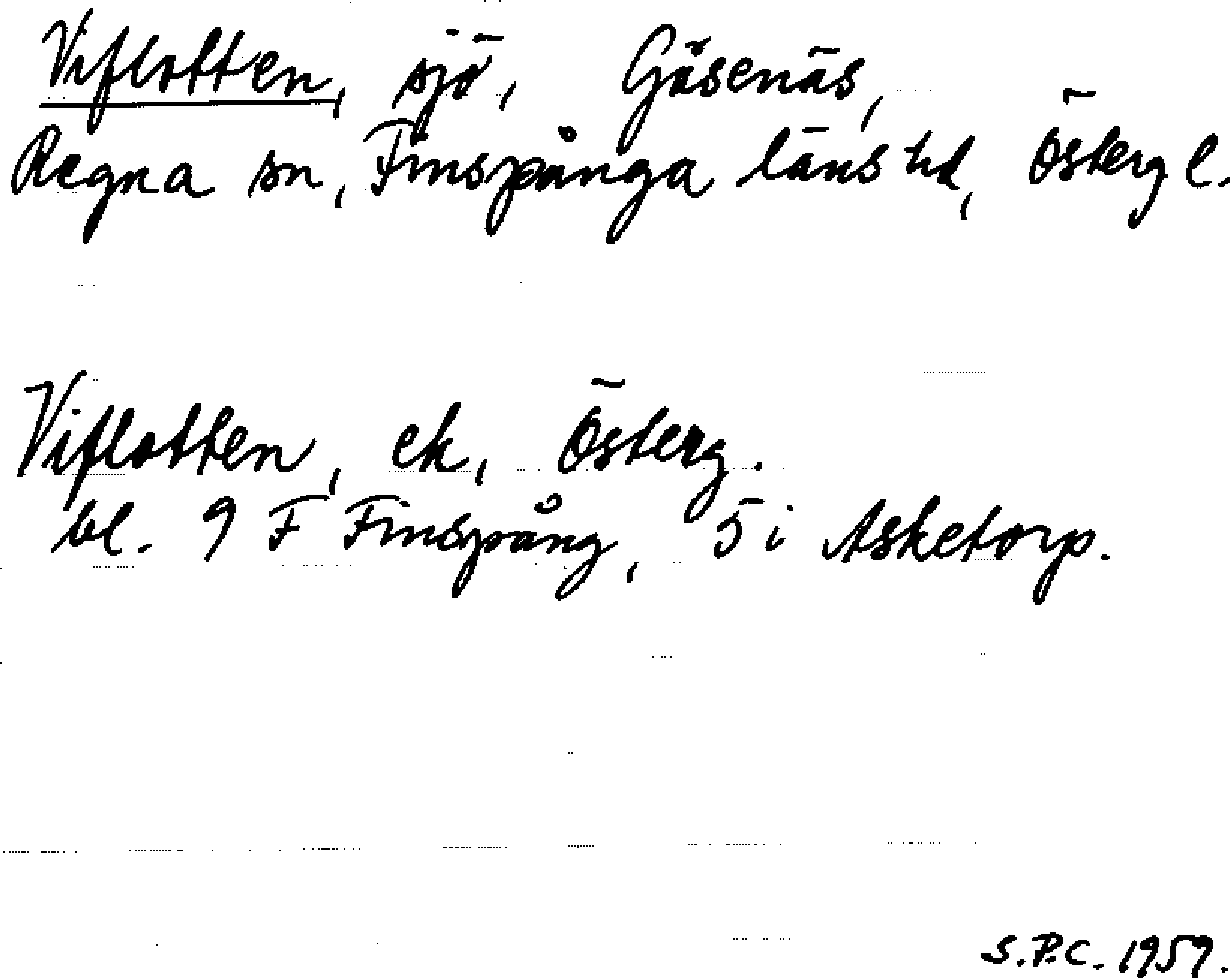 Viflotten, sjö, Gåsenäs,
Regna sn, Finspånga läns hd, Östergl.
Viflotten, ek, Österg.
bl. 9 F Finspång, 5 i Asketorp.
S.P.C. 1959.